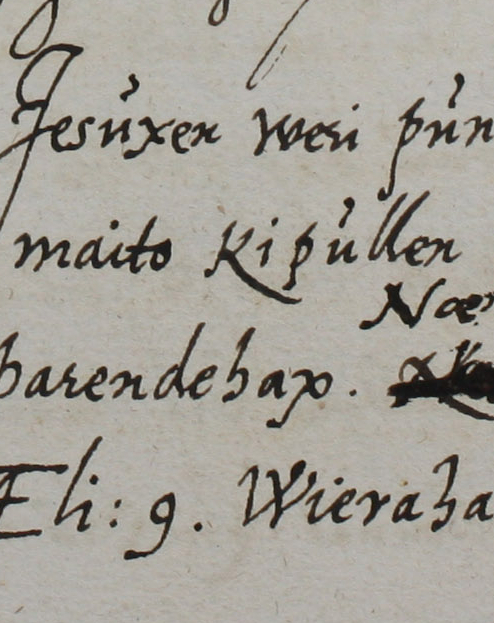 Jesuxen weri pun
maito Kipullen
Noe
barendehax.
Eli: 9. Wieraha